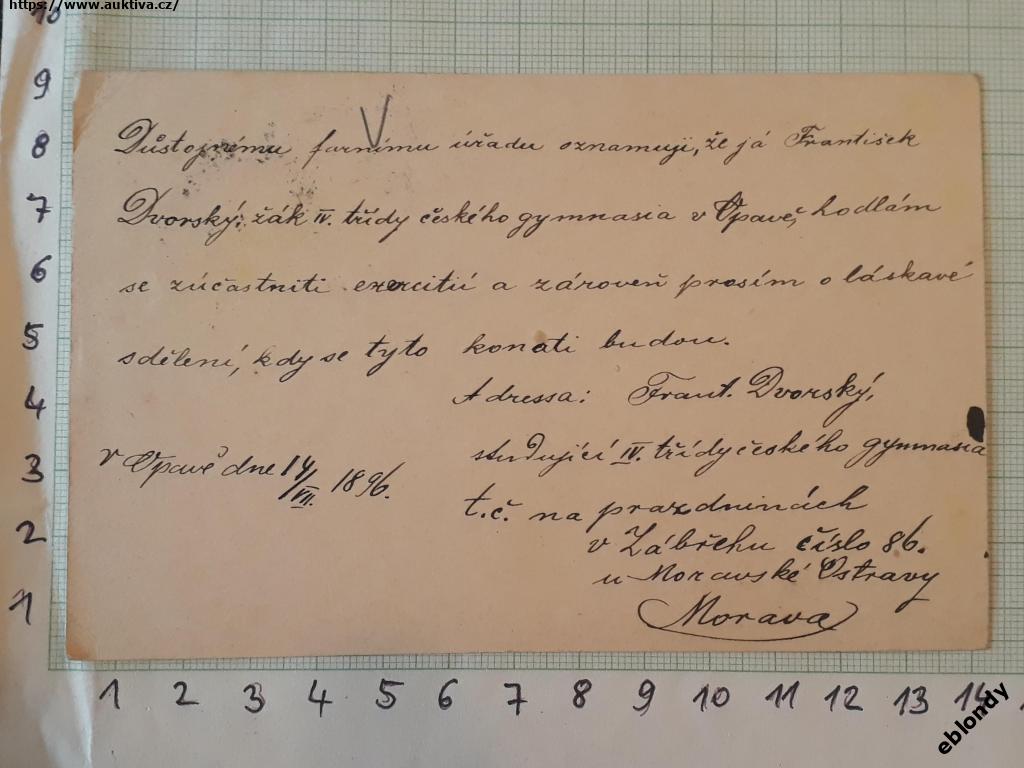 https://www.auktiva.cz/
10
9
8
7
6
5
4
3
2
1
V
Důstojnému farnímu úřadu oznamuji, že já František
Dvorský, žák IV. třídy českého gymnasia v Opavě, hodlám
se zúčastniti exercitií a zároveň prosím o láskavé
sdělení, kdy se tyto konati budou.
Adressa: Frant. Dvorský,
studující IV. třídy českého gymnasia
v Opavě dne 14/VII. 1896.
t.č. na prazdninách
v Zábřehu číslo 86.
u Moravské Ostravy
Morava
1 2 3 4 5 6 7 8 9 10 11 12 13 14
eblondy